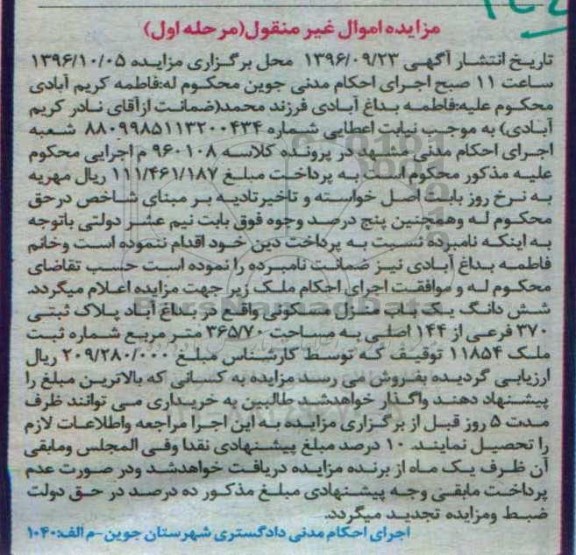 مزایده اموال غیر منقول(مرحله اول)
تاریخ انتشار آگهی ۱۳۹۶/۰۹/۲۳ محل برگزاری مزایده ۱۳۹۶/۱۰/۰۵
ساعت ۱۱ صبح اجرای احکام مدنی جوین محکوم له:فاطمه کریم آبادی
محکوم علیه:فاطمه بداغ آبادی فرزند محمد(ضمانت ازآقای نادر کریم
آبادی) به موجب نیابت اعطایی شماره ۸۸۰۹۹۸۵۱۱۳۲۰۰۴۳۴ شعبه
اجرای احکام مدنی مشهد در پرونده کلاسه ۹۶۰۱۰۸ م اجرایی محکوم
علیه مذکور محکوم است به پرداخت مبلغ ۱۱۱/۴۶۱/۱۸۷ ریال مهریه
به نرخ روز بابت اصل خواسته و تاخیرتادیه بر مبنای شاخص درحق
محکوم له وهمچنین پنج درصد وجوه فوق بابت نیم عشر دولتی باتوجه
به اینکه نامبرده نسبت به پرداخت دین خود اقدام ننموده است وخانم
فاطمه بداغ آبادی نیز ضمانت نامبرده را نموده است حسب تقاضای
محکوم له و موافقت اجرای احکام ملک زیر جهت مزایده اعلام میگردد.
شش دانگ یک باب منزل مسکونی واقع در بداغ آباد پلاک ثبتی
۳۷۰ فرعی از ۱۴۴ اصلی به مساحت ۳۶۵/۷۰ متر مربع شماره ثبت
ملک ۱۱۸۵۴ توقیف که توسط کارشناس مبلغ ۲۰۹/۲۸۰/۰۰۰ ریال
ارزیابی گردیده بفروش می رسد مزایده به کسانی که بالاترین مبلغ را
پیشنهاد دهند واگذار خواهدشد طالبین به خریداری می توانند ظرف
مدت ۵ روز قبل از برگزاری مزایده به این اجرا مراجعه واطلاعات لازم
را تحصیل نمایند. ۱۰ درصد مبلغ پیشنهادی نقدا وفی المجلس ومابقی
آن ظرف یک ماه از برنده مزایده دریافت خواهدشد ودر صورت عدم
پرداخت مابقی وجه پیشنهادی مبلغ مذکور ده درصد در حق دولت
ضبط ومزایده تجدید میگردد.
اجرای احکام مدنی دادگستری شهرستان جوین-م الف:۱۰۴۰